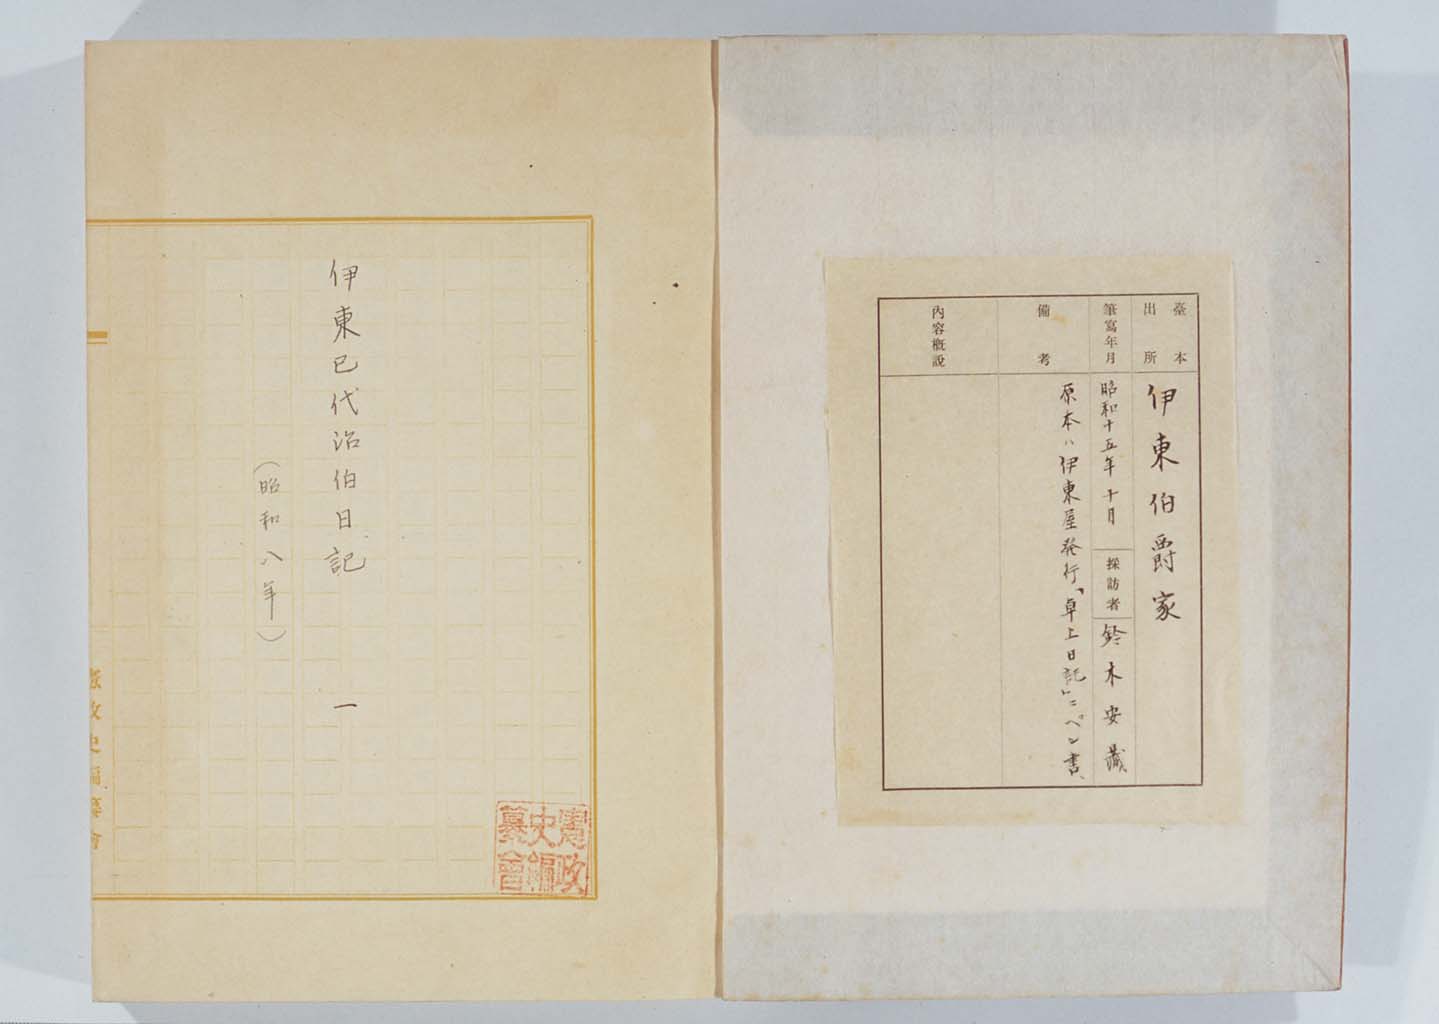 臺本
出所
伊東伯爵家
筆寫年月
昭和十五年十月
採訪者
鈴木安藏
備考
原本ハ伊東屋発行「卓上日記」ニペン書、
內容概說
伊東巳代治伯日記 一
(昭和八年)
憲政
史編
纂會
憲政史編纂會